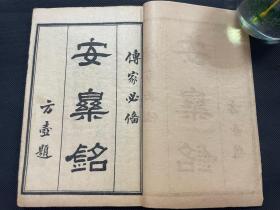 傳家必備
安樂銘
方壺題